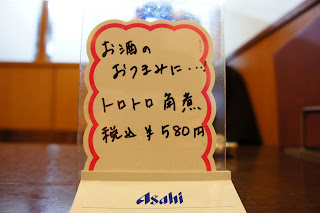 お酒の
おつまみに…
トロトロ角煮
税込¥580円
Asahi